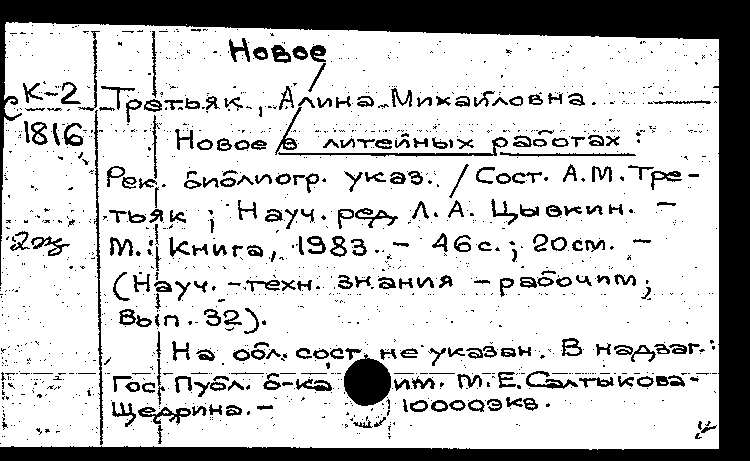 Новое
К-2
Третьяк, Алина Михайловна.
1816
Новое в литейных работах:
Рек. библиогр. указ. / Сост. А.М. Тре-
тьяк; Науч. ред. Л. А. Цывкин. –
2оз
М.: Книга, 1983. – 46 с.; 20 см. –
(Науч.-техн. знания – рабочим;
Вып. 32).
На обл. сост. не указан. В надзаг.:
Гос. Публ. б-ка им. М. Е. Салтыкова-
Щедрина. – 10000экз.